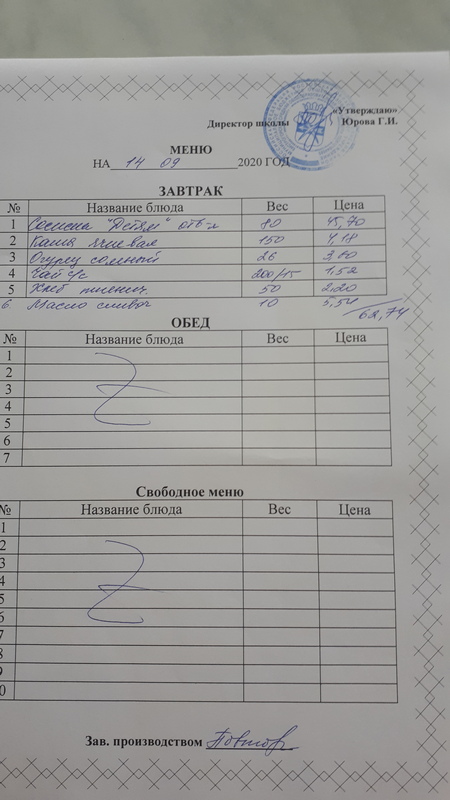 «Утверждаю»
Директор школы Юрова Г.И.
МЕНЮ
НА 14 09 2020 ГОД
ЗАВТРАК
№ Название блюда Вес Цена
1 Сосиска "Детям" отв-я 80 45,70
2 Каша ячневая 150 4,18
3 Огурец соленый 26 3,80
4 Чай с/с 200/15 1,52
5 Хлеб пшенич. 50 2,20
6. Масло сливоч 10 5,54
62,74
ОБЕД
№ Название блюда Вес Цена
1
2
3
4
5
6
7
Свободное меню
№ Название блюда Вес Цена
1
2
3
4
5
6
7
8
9
0
Зав. производством